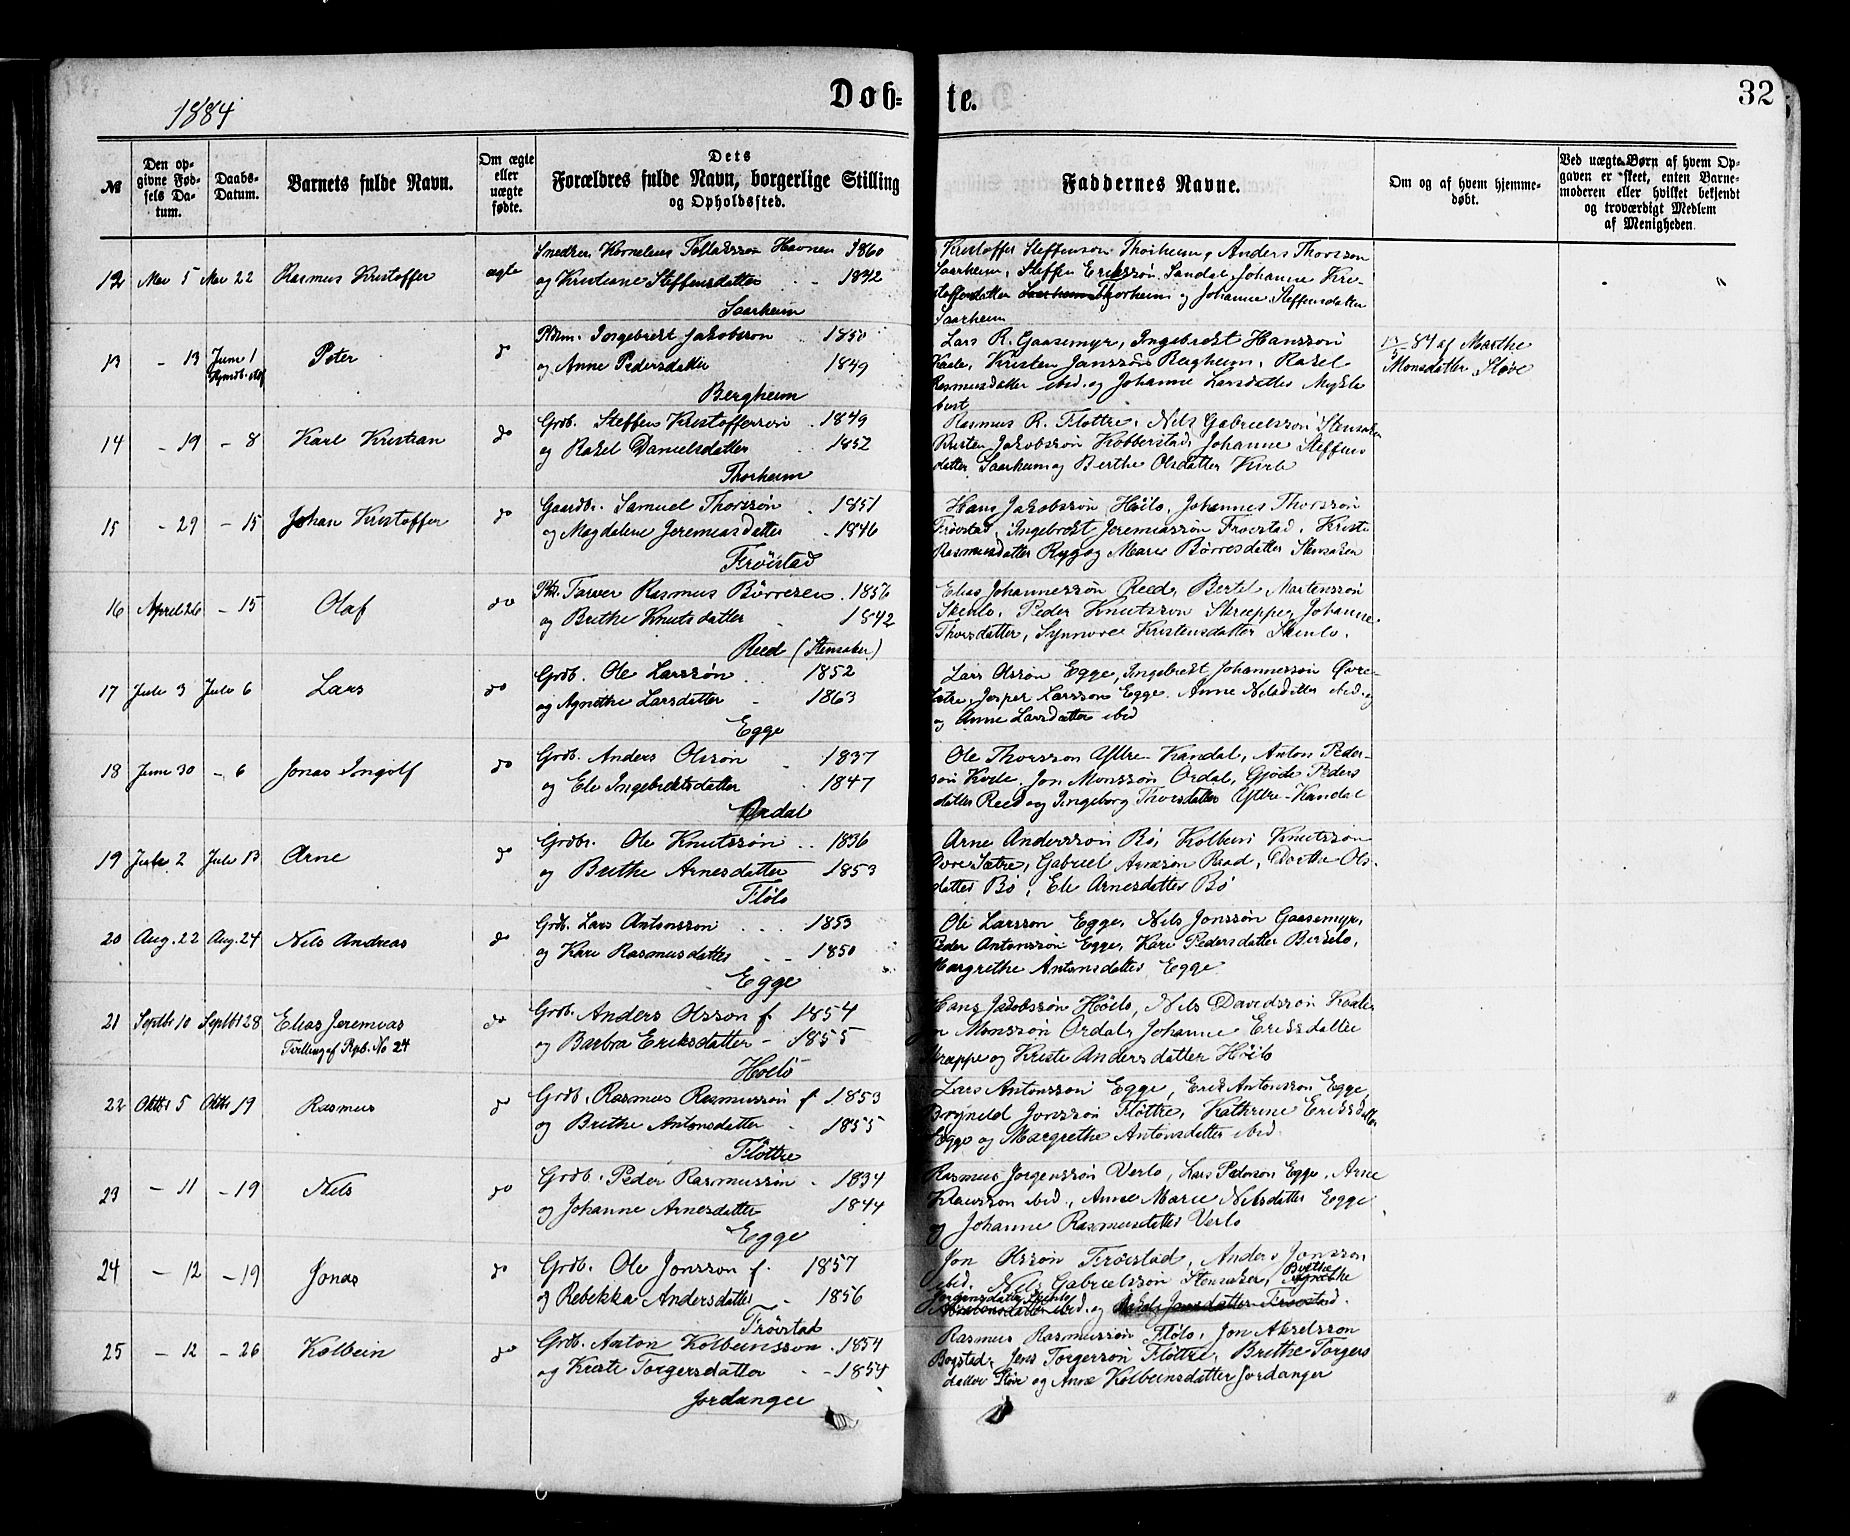 1884
Døb-
te.
32
№
Den op-
givne Fød-
sels Da-
tum.
Daabs-
Datum.
Barnets fulde Navn.
Om ægte
eller
uægte
fødte.
Dets
Forældres fulde Navn, borgerlige Stilling
og Opholdssted.
Faddernes Navne.
Om og af hvem hjemme-
døbt.
Ved uægte Børn af hvem Op-
gaven er skeet, enten Barne-
moderen eller hvilket bekjendt
og troværdigt Medlem
af Menigheden.
12 Mai 5 Mai 22 Rasmus Kristoffer ægte
Snedker Kornelius Havnen 1860
og Kristiane Steffensdatter 1842
Saarheim
Kristoffer Steffenson Thorheim, Anders Thorsson
Saarheim, Steffen Eriksson Sandal, Johanne Kri-
stoffersdatter Saarheim Thorheim og Johanne Steffensdatter
Saarheim
13 - 13 Juni 1 Peter do
Ingebrekt Jakobsson 1850
og Anne Pedersdatter 1849
Bergheim
Lars R. Gaasemyr, Ingebrekt Hansson
Kaale, Kristen Jansson Bergheim, Rakel
Rasmusdatter ibid. og Johanne Larsdatter Mykle
bust
84 af Marthe
Monsdatter Støve
14 - 19 - 8 Karl Kristian do
Grdb. Steffen Kristofferson 1849
og Rakel Danielsdatter 1852
Thorheim
Rasmus R. Flottre, Nils Gabrielsson Stensaker
Kristen Jakobsson Kobberstad, Johanne Steffens
datter Saarheim og Berthe Olsdatter Kirle
15 - 29 - 15 Johan Kristoffer do
Gaardb. Samuel Thorsson 1851
og Magdalene Jeremiasdatter 1846
Frøistad
Hans Jakobsson Høilo, Johannes Thorsson
Frøistad, Ingebrekt Jeremiasson Frøistad, Kristi
Rasmusdatter Ryg og Marie Børresdatter Stensaker
16 April 26 - 15 Olaf do
Rasmus Børresen 1856
og Brithe Knutsdatter 1842
Reed (Stensaker)
Elias Johannesson Reed, Bertel Martensson
Skenlo, Peder Knutsson Skræppe, Johanne
Thorsdatter, Synnove Kristensdatter Skenlo.
17 Juli 3 Juli 6 Lars do
Grdb. Ole Larsson 1852
og Agnethe Larsdatter 1863
Egge
Lars Olsson Egge, Ingebrekt Johannesson Øvre-
Sætre, Jesper Larsson Egge. Anne Nilsdatter ibid. og
og Anne Larsdatter ibid
18 Juni 30 - 6 Jonas Ingolf do
Grdb. Anders Olsson 1837
og Eli Ingebrektsdatter 1847
Ordal
Ole Thorsson Yttre-Kandal, Anton Peder-
son Kirle, Jon Monsson Ordal, Gjøde Peders
datter Reed og Ingeborg Thorsdatter Yttre-Kandal
19 Juli 2 Juli 13 Arne do
Grdb. Ole Knutsson 1836
og Brithe Arnesdatter 1853
Fløtlo
Arne Andersson Bø, Kolbein Knutsson
Øvre Sætre, Gabriel Arneson Raad, Dorthe Ols-
datter Bø, Eli Arnesdatter Bø
20 Aug. 22 Aug. 24 Nils Andreas do
Grdb. Lars Antonsson 1853
og Kari Rasmusdatter 1850
Egge
Ole Larsson Egge, Nils Jonsson Gaasemyr,
Peder Antonsson Egge, Kari Pedersdatter Birkelo,
Margrethe Antonsdatter Egge
21 Septbr 10 Septbr 28 Elias Jeremias do
Tvilling af Rpb. No 24
Grdb. Anders Olsson f. 1854
og Barbra Eriksdatter - 1855
Høilo
Hans Jakobsson Høilo, Nils Davidsson Kaale
Monsson Ordal, Johanne Eriksdatter
Skræppe og Kristi Andersdatter Høilo
22 Oktbr 5 Oktbr 19 Rasmus do
Grdb. Rasmus Rasmusson f 1853
og Brithe Antonsdatter 1855
Fløttre
Lars Antonsson Egge, Erik Antonsson Egge,
Brynild Jonsson Fløttre, Kathrine Eriksdatter
Egge og Margrethe Antonsdatter ibid.
23 - 11 - 19 Nils do
Grdb. Peder Rasmusson 1834
og Johanne Arnesdatter 1844
Egge
Rasmus Jorgensson Verlo, Lars Pederson Egge, Arne
Klausson ibid., Anne Marie Nilsdatter Egge
og Johanne Rasmusdatter Verlo
24 - 12 - 19 Jonas do
Grdb. Ole Jonsson f. 1857
og Rebekka Andersdatter 1856
Frøistad
Jon Olsson Frøistad, Anders Jonsson
ibid. Nils Gabrielsson Stensaker, Brithe Agnethe
Jorgensdatter Skenlo
Absalonsdatter ibid. og Jonsdatter Frøistad.
25 - 12 - 26 Kolbein do
Grdb. Anton Kolbeinsson 1854
og Kristi Torgersdatter - 1854
Jordanger
Rasmus Rasmusson Fløtlo, Jon Akselsson
Bogstad, Jens Torgerson Fløttre, Brithe Torgers
datter Støve og Anne Kolbeinsdatter Jordanger